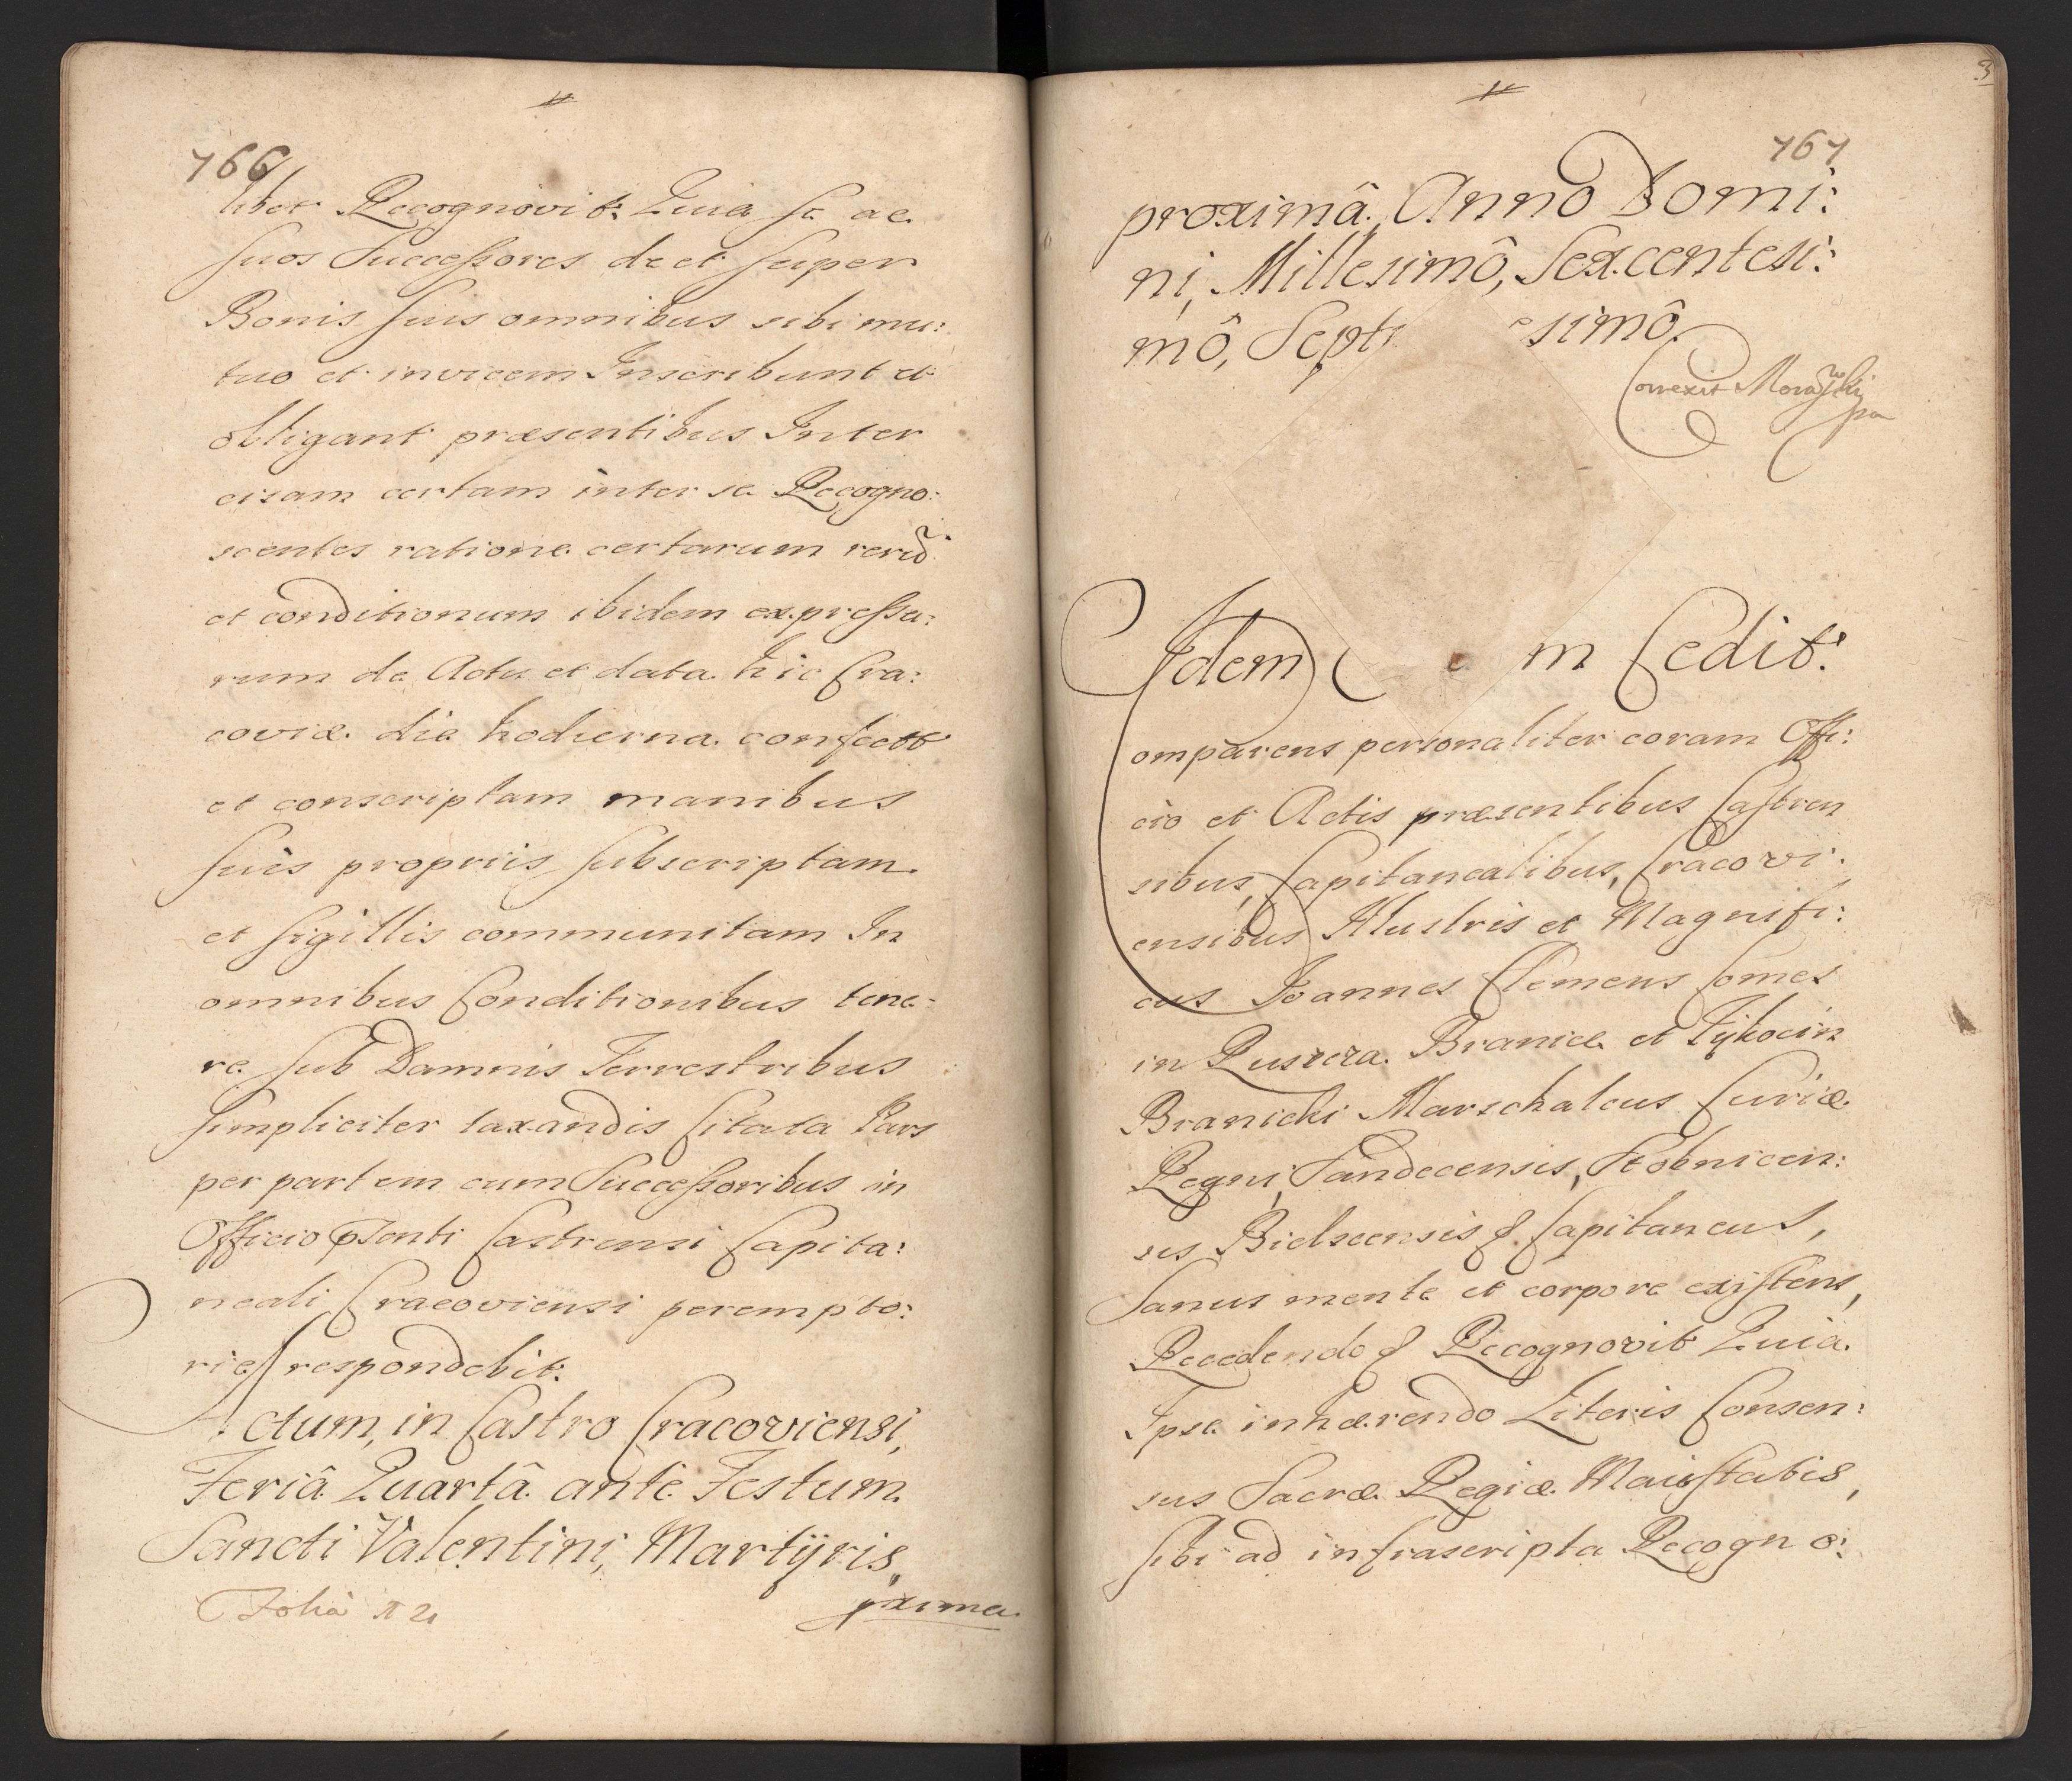 766
libet Recognovit. Quia se ac
suos Successores de et super
Bonis suis omnibus sibi mu:
tuo et invicem Inscribunt et
obligant præsentibus Inter
cisam certam inter se Recogno:
scentes ratione certarum rerũ
et conditionum ibidem expressa:
rum de Actu et data hic Cra:
coviæ die hodierna confect
et conscriptam manibus
suis propriis subscriptam
et sigillis communitam In
omnibus Conditionibus tene:
re sub Damnis Terrestribus
simpliciter taxandis Citata Pars
per partem cum Successoribus in
Officio Castrensi Capita:
neali Cracoviensi perempto:
rie respondebit.
Actum, in Castro Cracoviensi,
Feriâ Quartâ ante Festum
Sancti Valentini, Martÿris,
pxima
767
proximâ, Anno Domi:
ni, Millesimô, Sexcentesi:
mô, Sept esimô.
Correxit
3
Idem m Cedit.
Comparens personaliter coram Offi:
cio et Actis præsentibus Castren
sibus, Capitanealibus, Cracovi:
ensibus Illustris et Magnifi:
cus Joannes Clemens Comes
in Ruszcza Branice et Tykocin
Branicki Marschalcus Curiæ
Regni, Sandecensis, Stobnicen:
sis Bielscensis & Capitaneus,
Sanus mente et corpore existens,
Recedendo & Recognovit Quia
Ipse inhærendo Literis Consen:
sus Sacræ Regiæ Maiestatis,
sibi ad infrascripta Recogno: